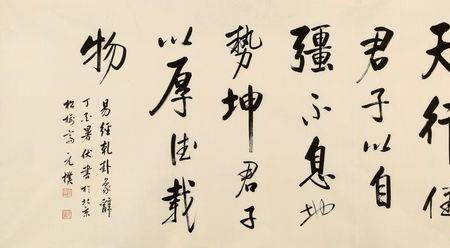 天行健
君子以自
彊不息地
勢坤君子
以厚德載
物
易經乾卦象辭
丁 暑伏書於北京
松 斋元樸